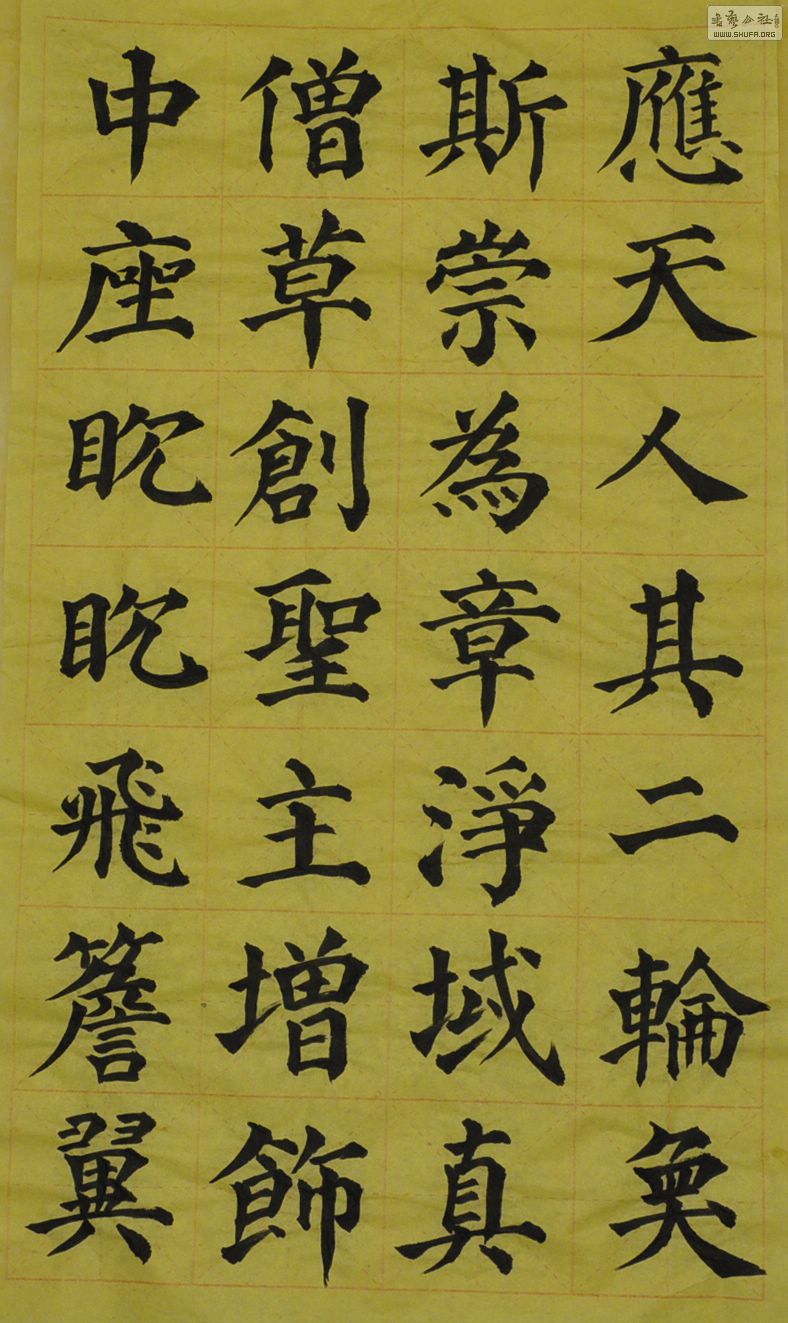 應天人其二輪奐
斯崇為章淨域真
僧草創聖主增飾
中座眈眈飛簷翼
書藝公社
WWW.SHUFA.ORG